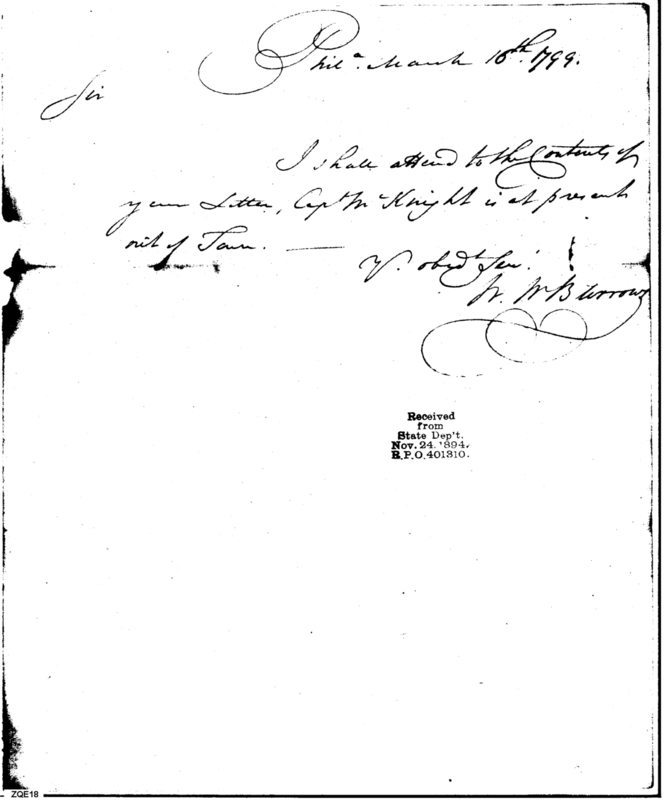 Phil.a March 16th. 1799.
Sir
I shall attend to the Contents of
your Letter, Capt. Mc Knight is at present
out of Town. —
Yr. obedt. Ser.
W. W Burrows
Received
from
State Dep't.
Nov. 24. 1894.
R.P.O. 401310.
ZQE18